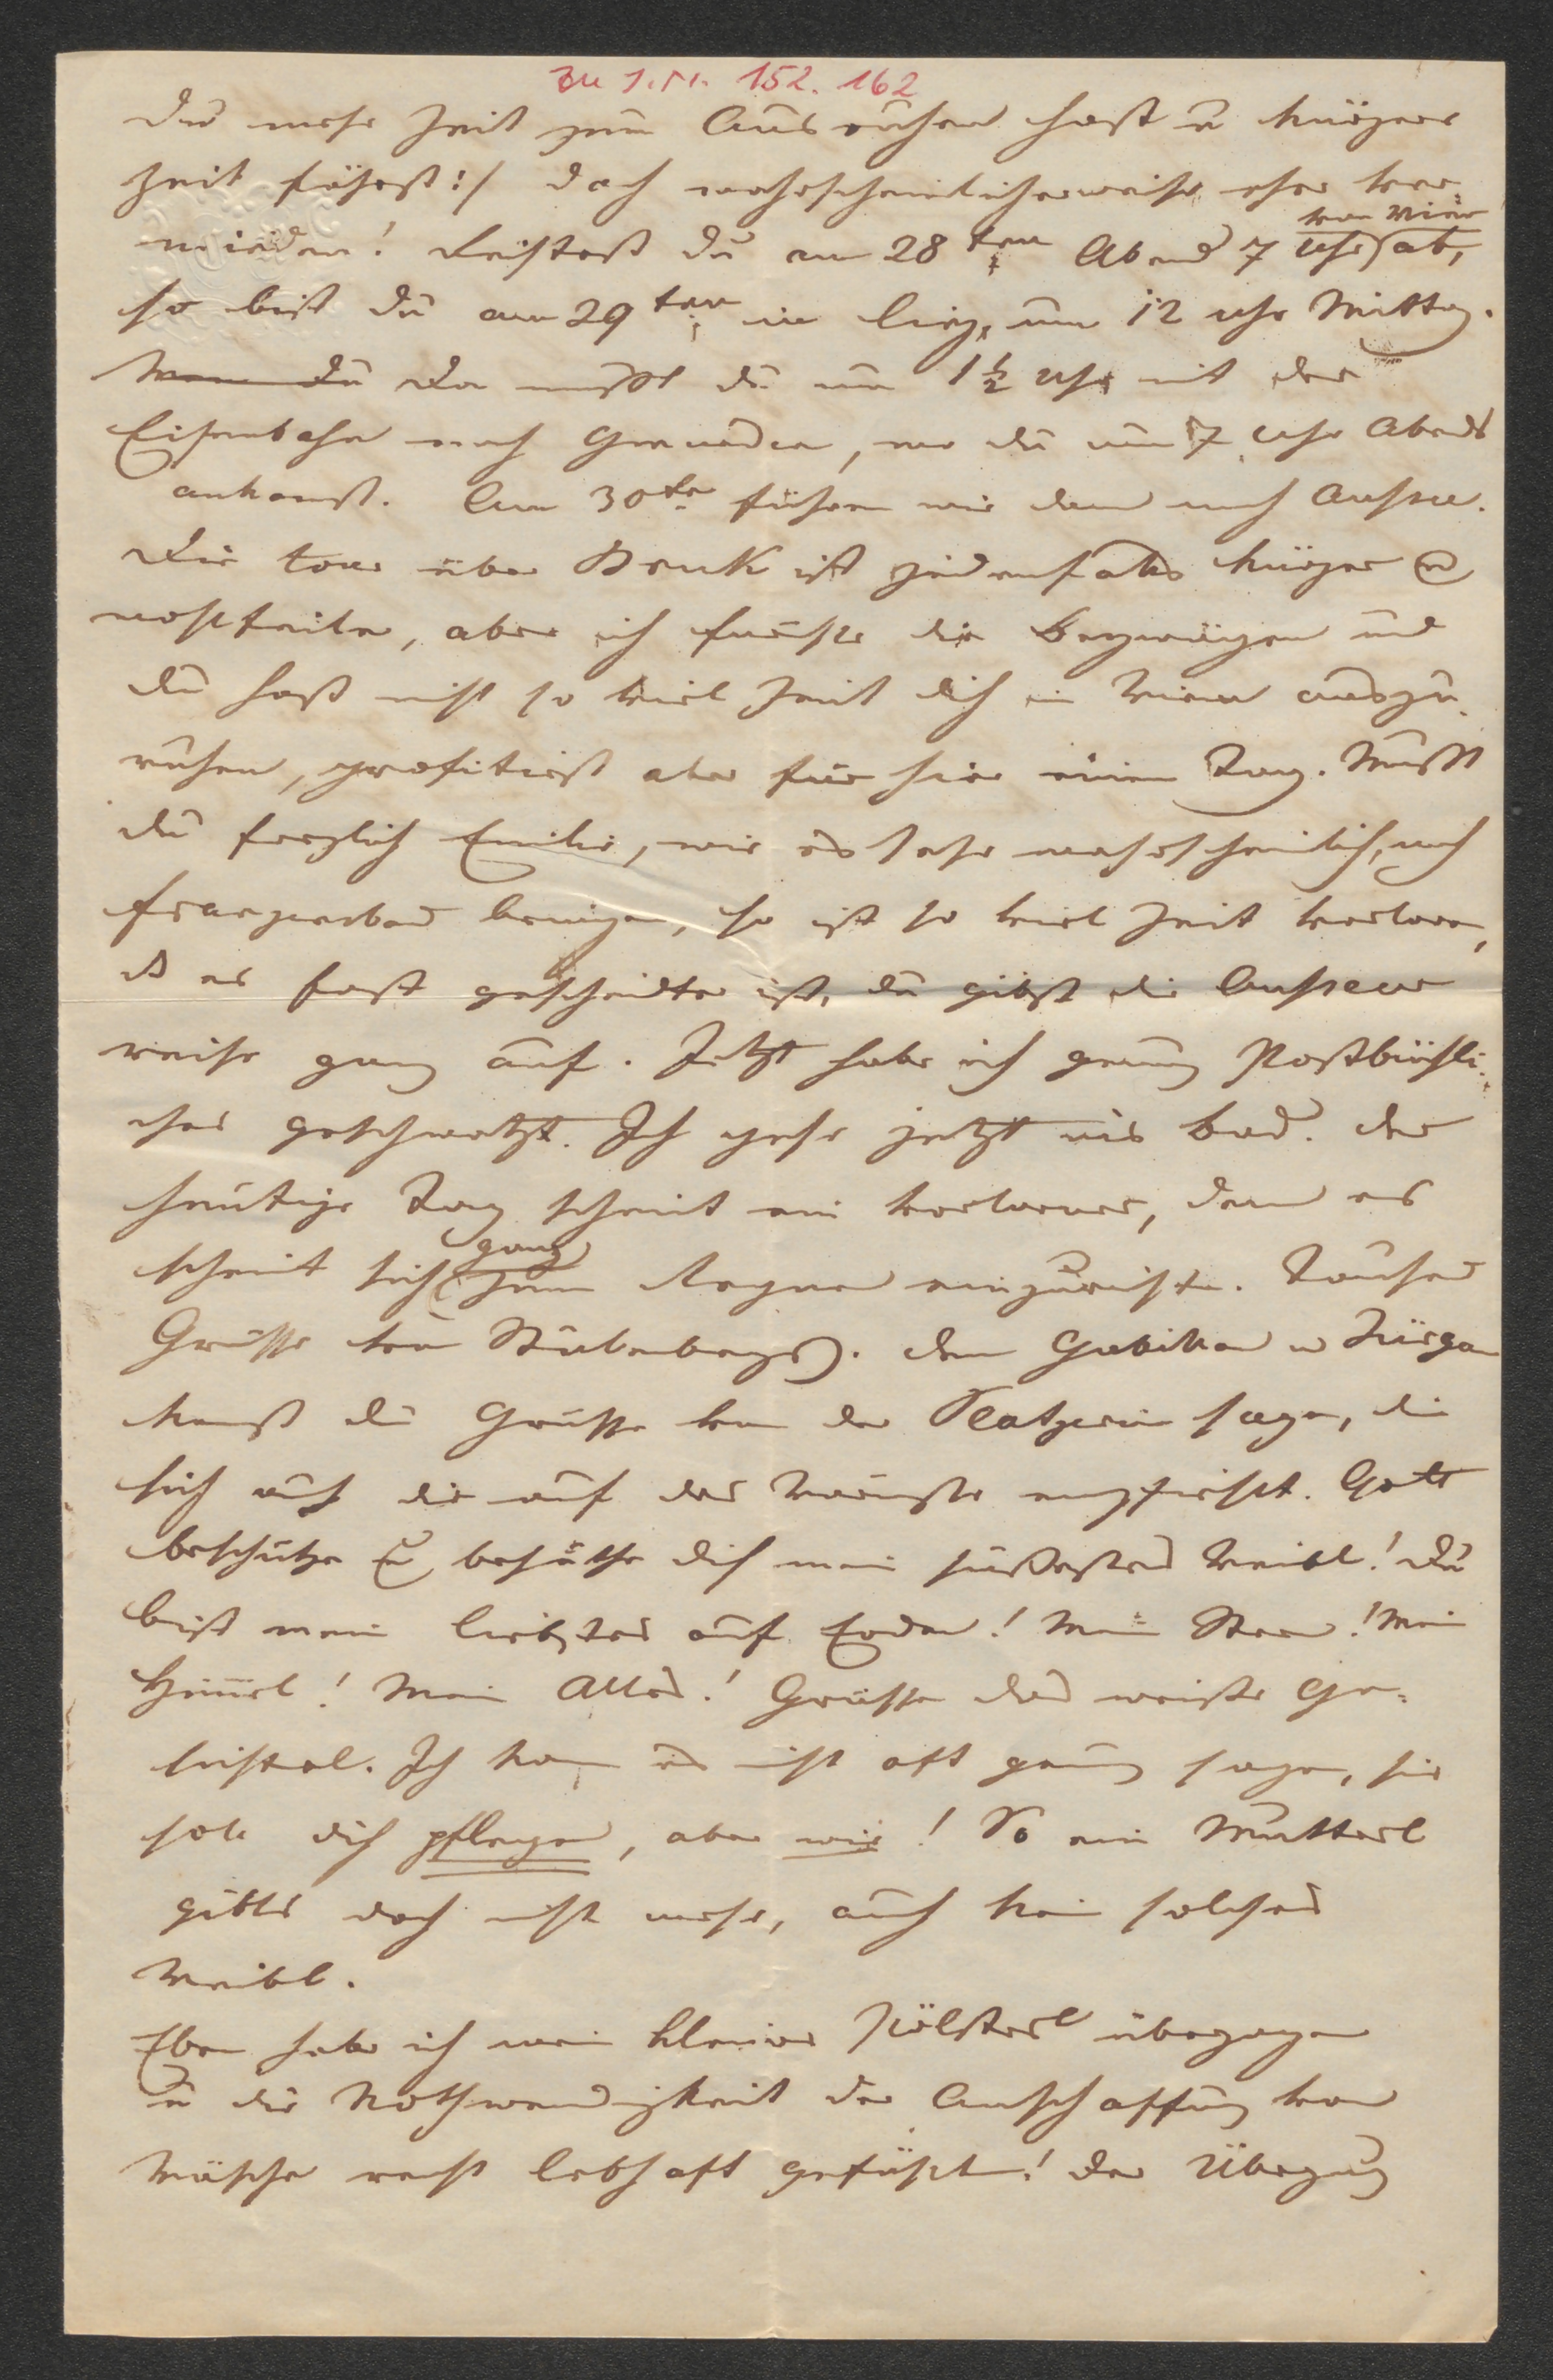 Zu I.N. 152.162
Du mehr Zeit zum Ausruhen hast u kürzere
Zeit fährst :/ doch wahrscheinlicherweise eher ver-
mieden! Reistest du am 28ten Abend 7 Uhr von Wien ab,
so bist du am 29ten in Linz, um 12 Uhr Mittag.
Wenn du Da mußt du um 1½ Uhr mit der
Eisenbahn nach Gmunden, wo du um 7 Uhr Abends
ankomst. Am 30ten führen wir dann nach Aussee.
Die tour über Bruk ist jedenfalls kürzer u
wohlfeiler, aber ich fürchte die und
du hast nicht so viel Zeit dich in Wien auszu-
ruhen, profitirst aber für hier einen Tag. Mußt
du freylich Emilie, wie es sehr wahrscheinlich, nach
Franzensbad bringen, so ist so viel Zeit verloren,
dß es fast gescheidter ist, du gibst die Ausseer
reise ganz auf. Jetzt habe ich genug Postbüchli-
ches geschwatzt. Ich gehe jetzt ins Bad. Der
heutige Tag scheint ein verlorner, denn es
scheint sich ganz zum Regnen einzurichten. Tausend
Grüsse den Stubenbergs. Dem u
kanst du Grüsse von der sagen, die
sich auch dir auf das Wärmste empfiehlt. Gott
beschütze u behüthe dich mein süßestes Weibl! Du
bist mein liebstes auf Erden! Mein Stern! Mein
Himel! Mein Alles! Grüsse das weiße Ge-
sichterl. Ich kann es nicht oft genug sagen, sie
soll dich pflegen, aber wie! So ein Mutterl
gibts doch nicht mehr, auch kein solches
Weibl.
Eben habe ich mein kleines Pölsterl überzogen
u die Nothwendigkeit der Anschaffung von
Wäsche recht lebhaft gefühlt! Der Überzug